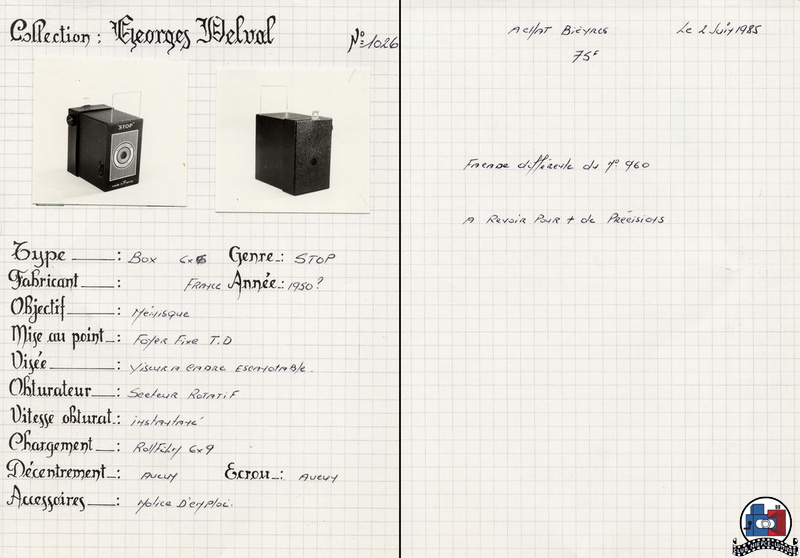 Collection : Georges Delval
N° 1026
STOP
Type : Box 6x6 Genre : STOP
Fabricant : FRANCE Année : 1950?
Objectif : Ménisque
Mise au point : Foyer Fixe T.D
Visée : Viseur a cadre Escamotable.
Obturateur : Secteur Rotatif
Vitesse obturat : instantané
Chargement : Rollfilm 6x9
Décentrement : Aucun Ecrou : Aucun
Accessoires : Notice D'emploi.
Achat Bièvres Le 2 Juin 1985
75F
Facade différente du N° 960
A Revoir Pour + de Précisions